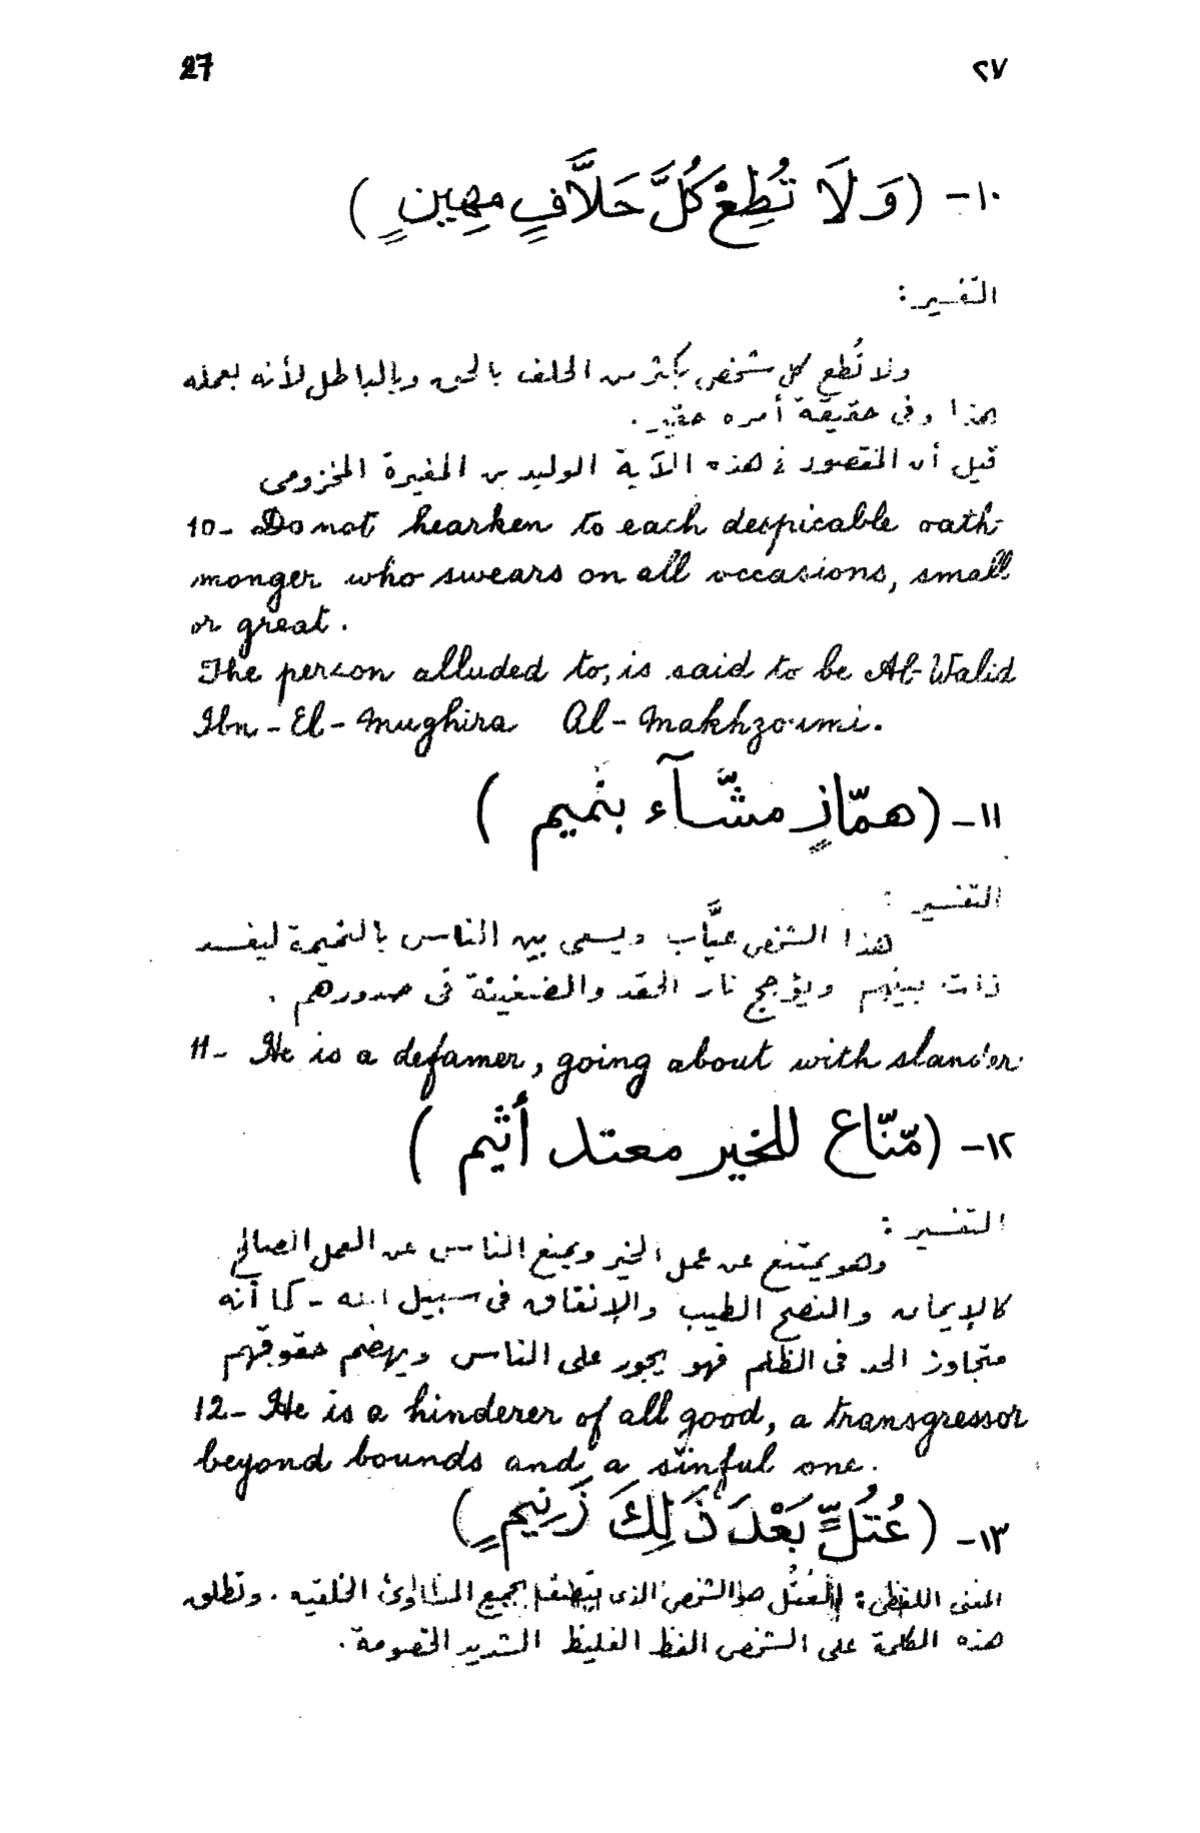 27 ٢٧
١٠- (وَلَا تُطِعْ كُلَّ حَلَّافٍ مهِينٍ)
التفسير:
ولا تُطع كل شخص يكثر من الحلف بالحق وبالباطل لأنه بعمله
هذا وفى حقيقة أمره حقير.
قيل أن المقصود فى هذه الآية الوليد بن المغيرة المخزومى
10- Do not hearken to each despicable oath-
monger who swears on all occasions, small
or great.
The person alluded to, is said to be Al-Walid
Ibn-El-Mughira Al-Makhzoumi.
١١- (همّازٍ مشّآء بنميم)
التفسير:
هذا الشخص عيَّاب ويسعى بين الناس بالنميمة ليفسد
ذات بينهم ويؤجج نار الحقد والضغينة فى صدورهم.
11- He is a defamer, going about with slander.
١٢- (منّاع للخير معتد أثيم)
التفسير:
وهو يمتنع عن عمل الخير ويمنع الناس عن العمل الصالح
كالإيمان والنصح الطيب والإنفاق فى سبيل الله - كما أنه
متجاوز الحد فى الظلم فهو يجور على الناس ويهضم حقوقهم
12- He is a hinderer of all good, a transgressor
beyond bounds and a sinful one.
١٣- (عُتُلٍّ بَعْدَ ذَلِكَ زَنِيمٍ)
المعنى اللفظى: العُتُل هو الشخص الذى يتصف بجميع المساوئ الخلقيه. وتطلق
هذه الكلمة على الشخص الفظ الغليظ الشديد الخصومة.